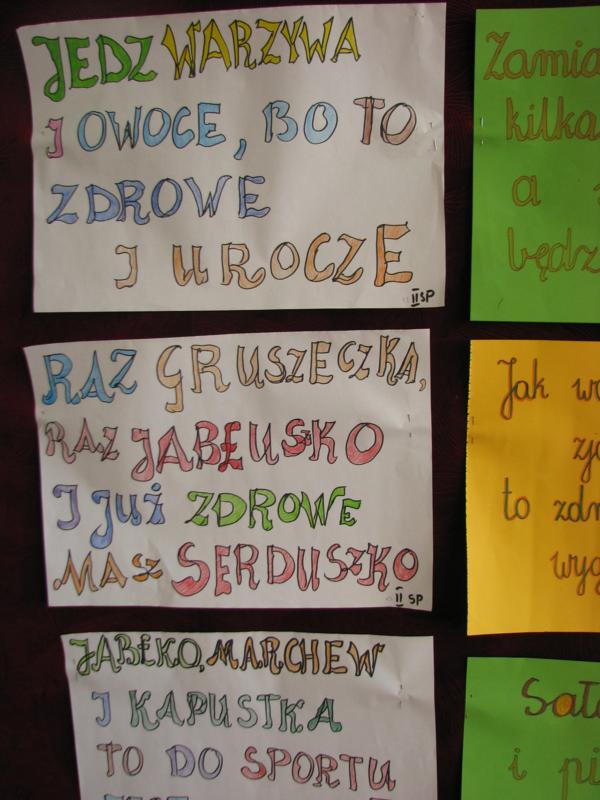 JEDZ WARZYWA
I OWOCE, BO TO
ZDROWE
I UROCZE
II SP
RAZ GRUSZECZKA,
RAZ JABŁUSZKO
I JUŻ ZDROWE
MASZ SERDUSZKO
II SP
JABŁKO, MARCHEW
I KAPUSTKA
TO DO SPORTU
Zamia
kilka
a
będz
Jak
zj
to zdr
wyg
Sał
i pi